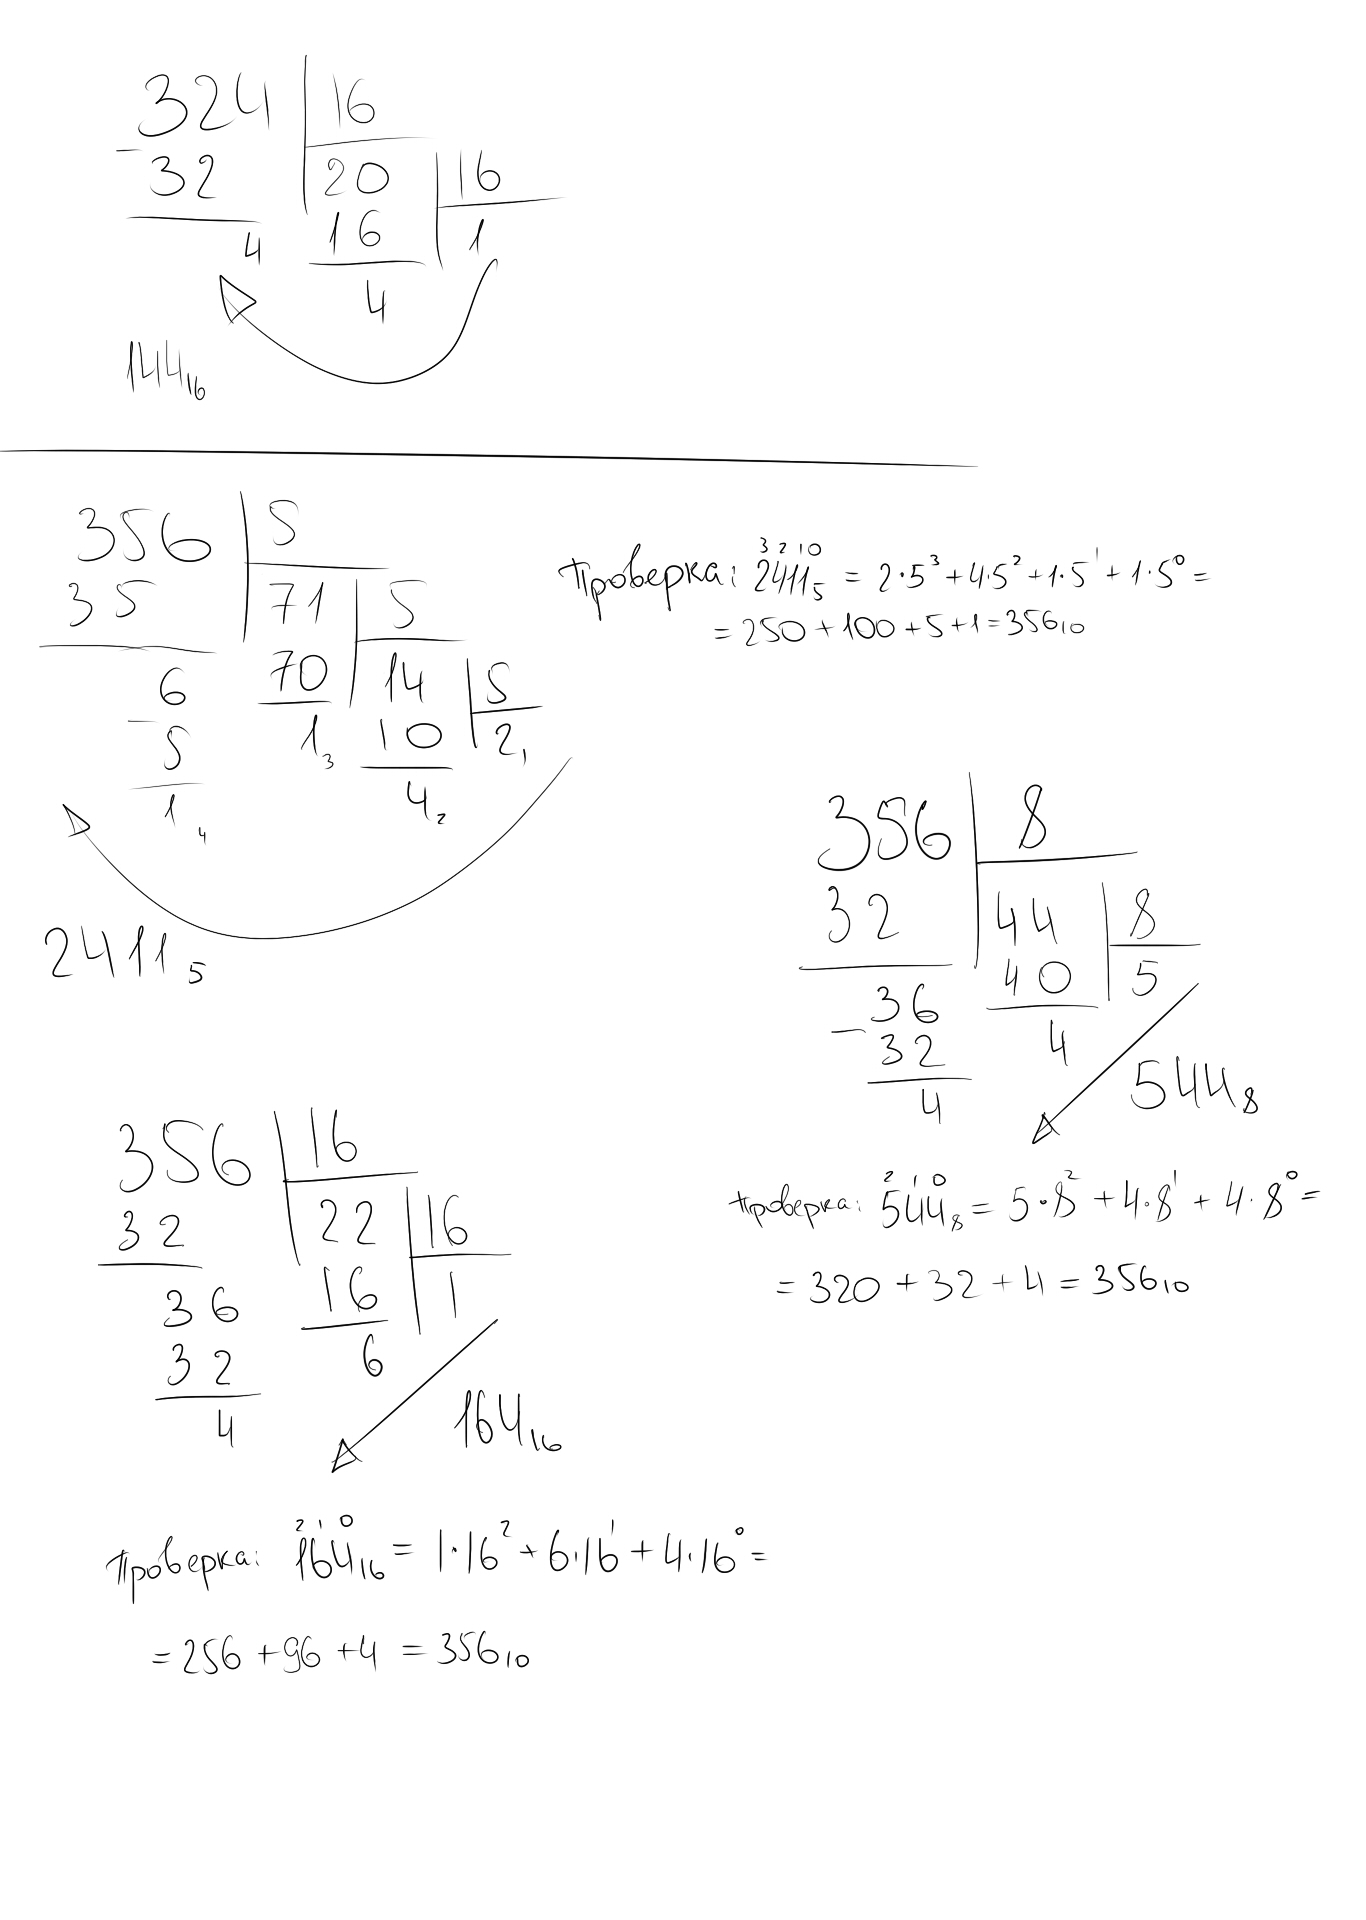 324 16
32 20 16
4 16 1
4
144₁₆
356 5
35 71 5
6 70 14 5
5 1₃ 10 2₁
1₄ 4₂
2411₅
3 2 1 0
Проверка: 2411₅ = 2·5³+4·5²+1·5¹+1·5⁰=
= 250+100+5+1=356₁₀
356 8
32 44 8
36 40 5
32 4
4
544₈
2 1 0
проверка: 544₈ = 5·8²+4·8¹+4·8⁰=
= 320+32+4=356₁₀
356 16
32 22 16
36 16 1
32 6
4
164₁₆
2 1 0
Проверка: 164₁₆ = 1·16²+6·16¹+4·16⁰=
= 256+96+4 = 356₁₀